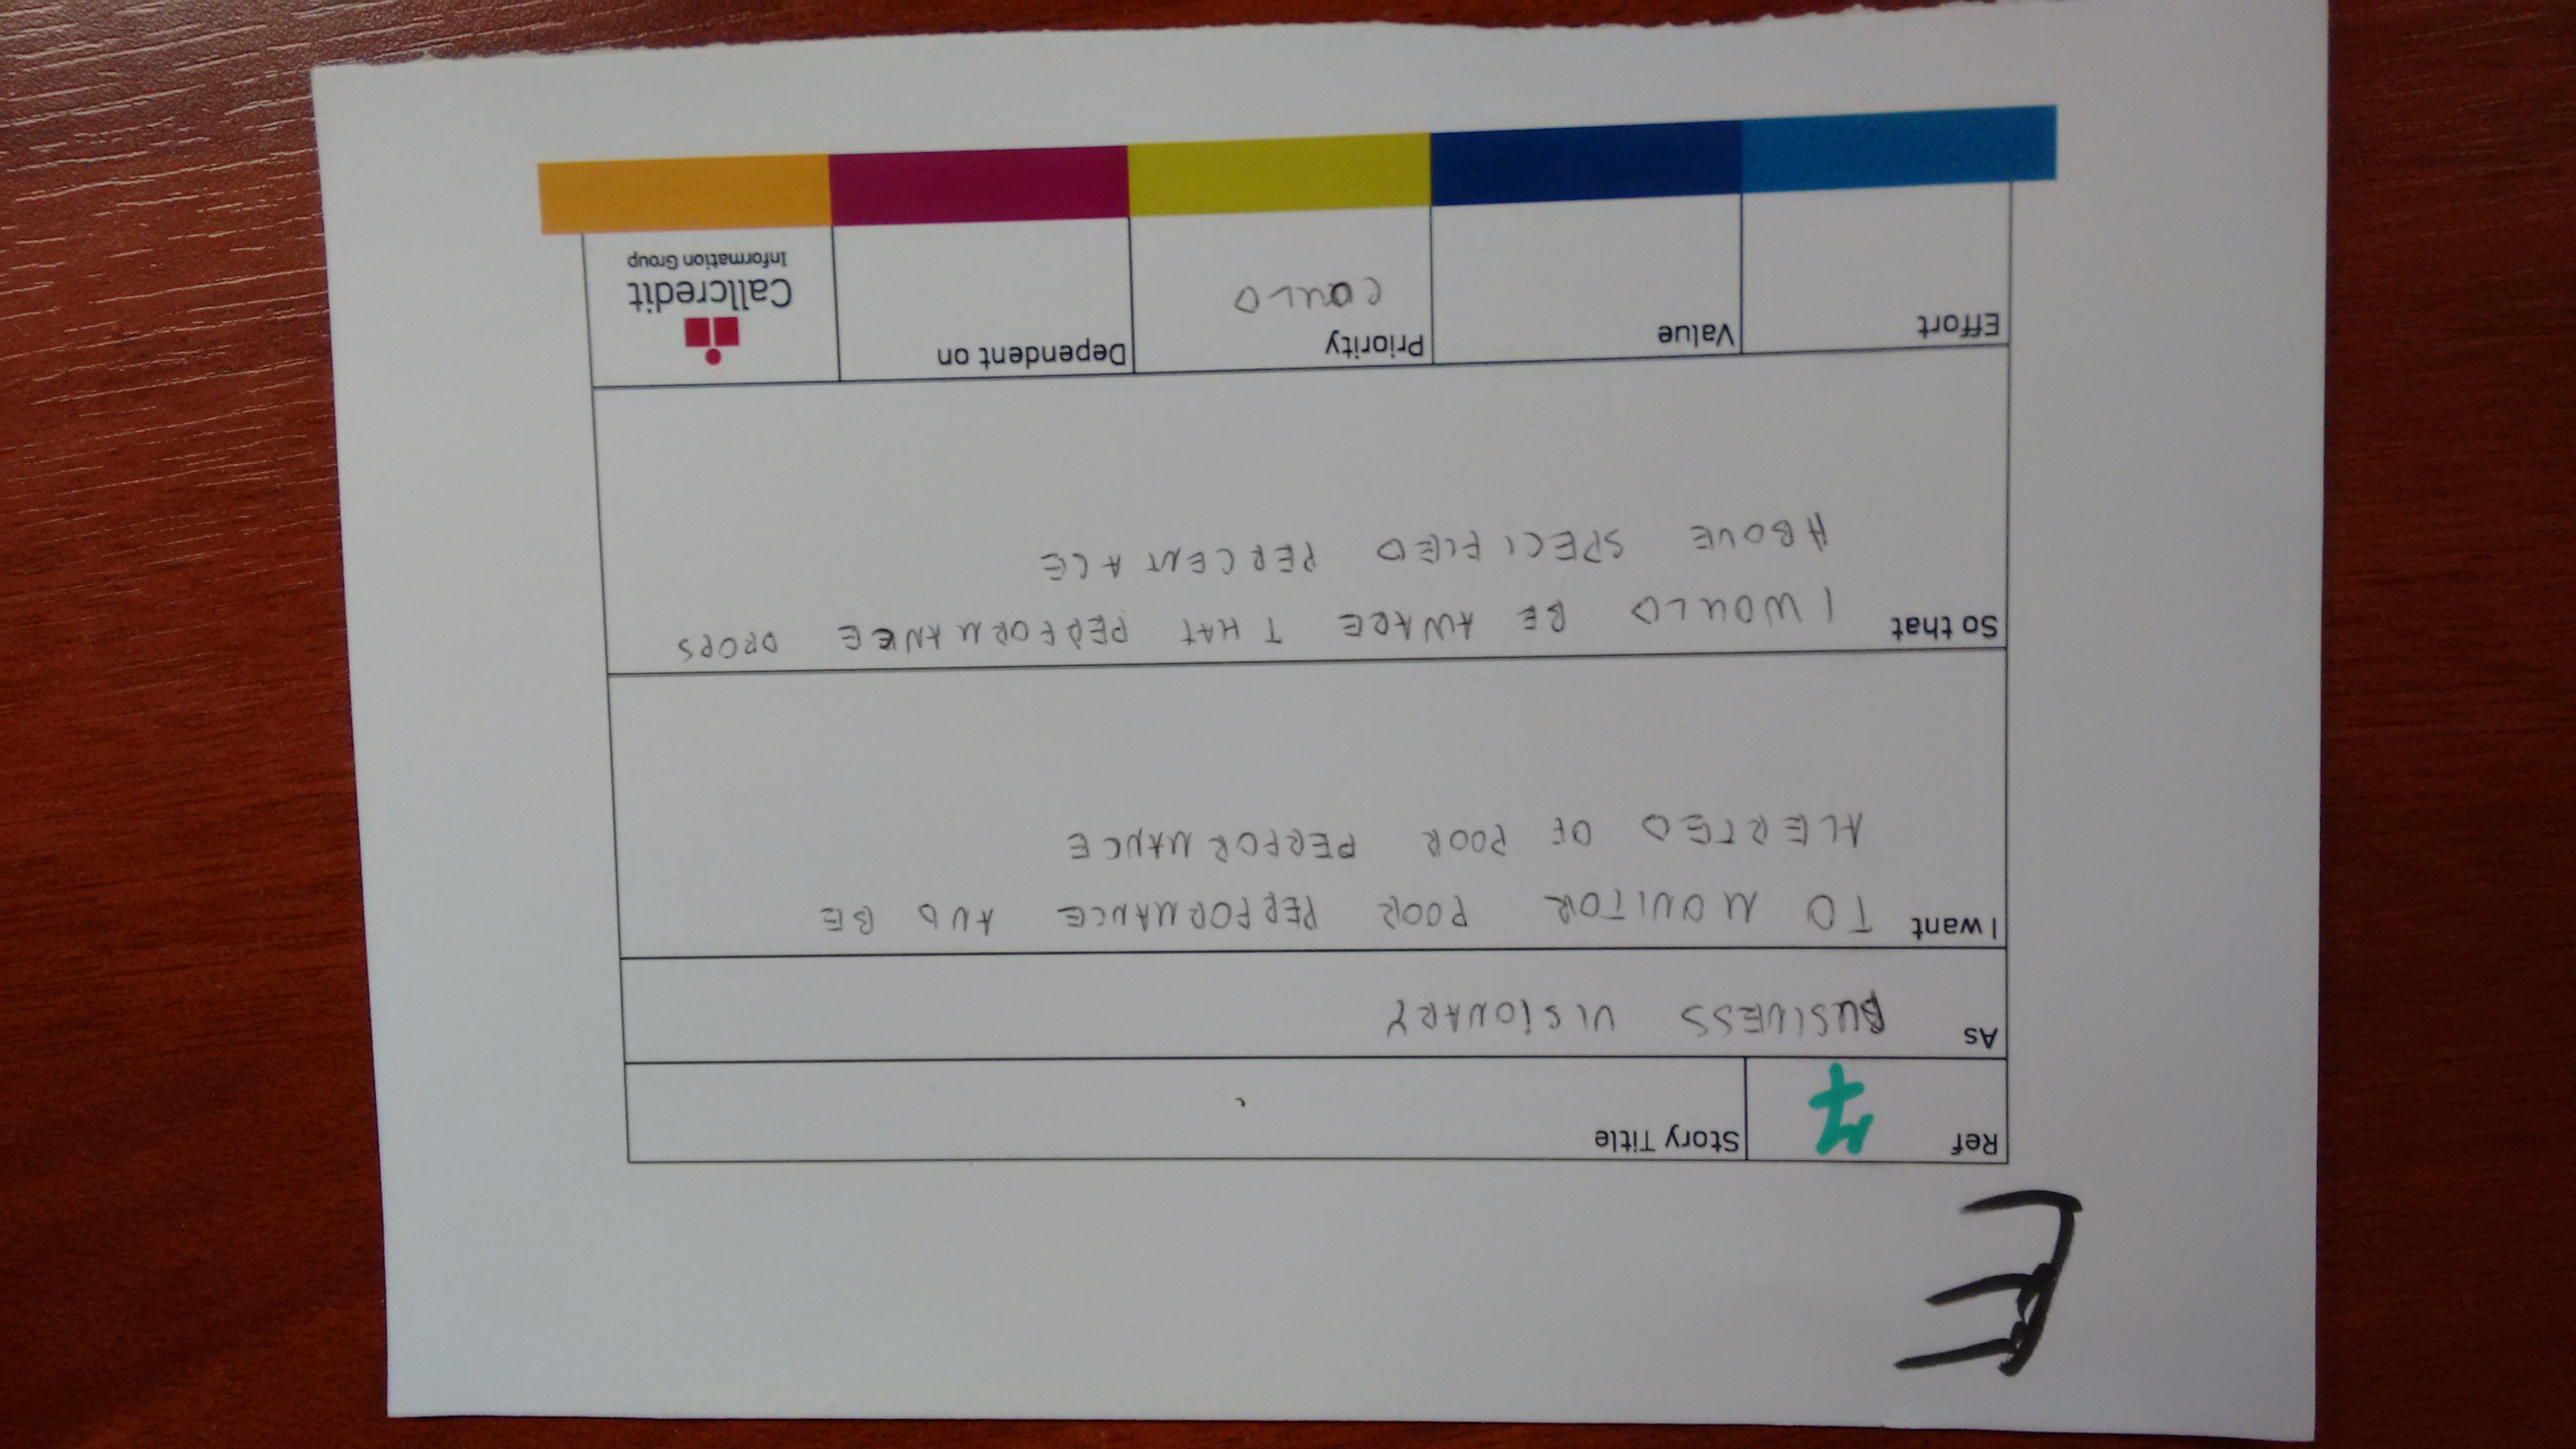 E
Ref 7 Story Title
As BUSINESS VISIONARY
I want TO MONITOR POOR PERFORMANCE AND BE
ALERTED OF POOR PERFORMANCE
So that I WOULD BE AWARE THAT PERFORMANCE DROPS
ABOVE SPECIFIED PERCENTAGE
Effort Value Priority Dependent on
COULD
Callcredit
Information Group